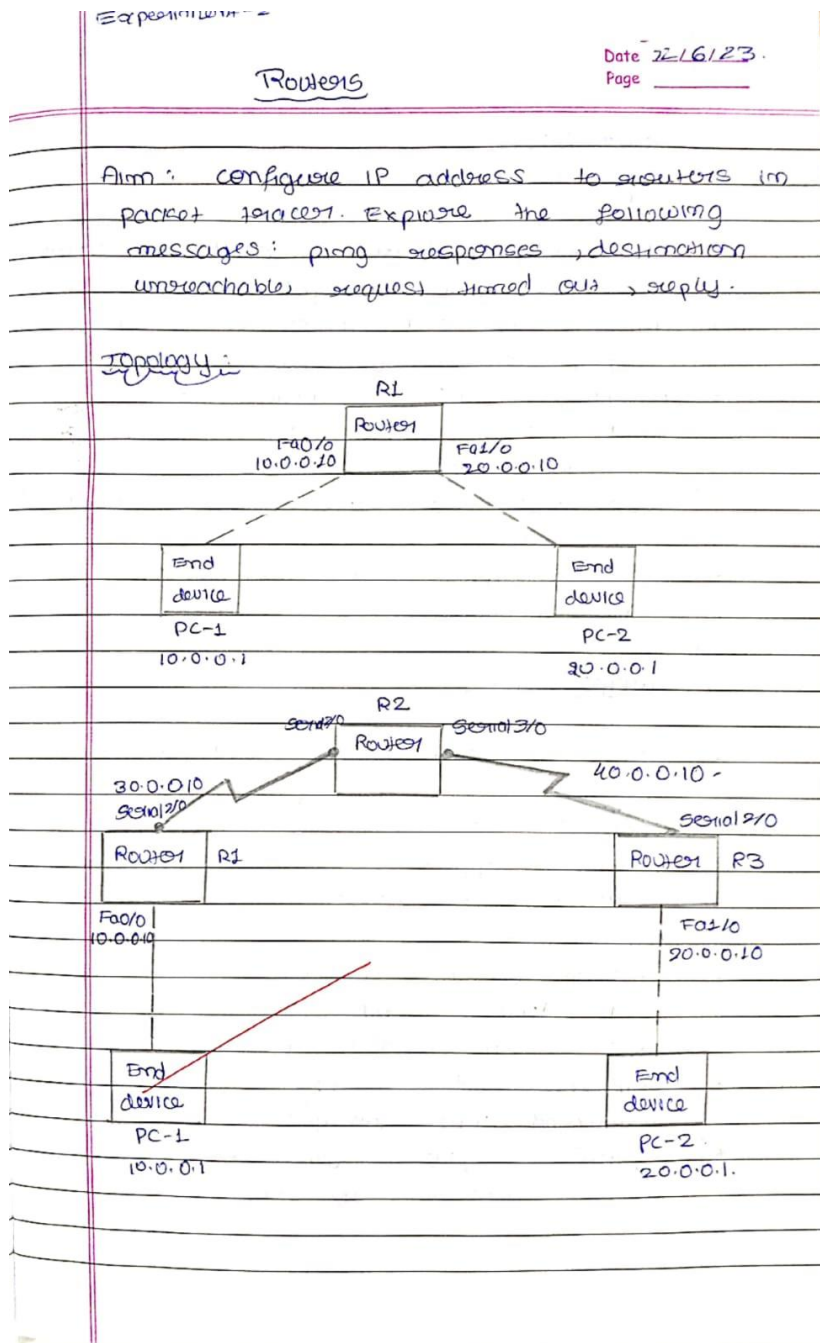 Date 22/6/23.
Page
Routers
Aim: configure IP address to routers in
packet tracer. Explore the following
messages: ping responses, destination
unreachable, request timed out, reply.
Topology:
R1
Router
Fa0/0
10.0.0.10
Fa1/0
20.0.0.10
End
device
PC-1
10.0.0.1
End
device
PC-2
20.0.0.1
R2
Router
Serial3/0
30.0.010
Serial2/0
40.0.0.10 -
Serial2/0
Router R1
Router R3
Fa0/0
10.0.010
Fa1/0
20.0.0.10
End
device
PC-1
10.0.0.1
End
device
PC-2.
20.0.0.1.